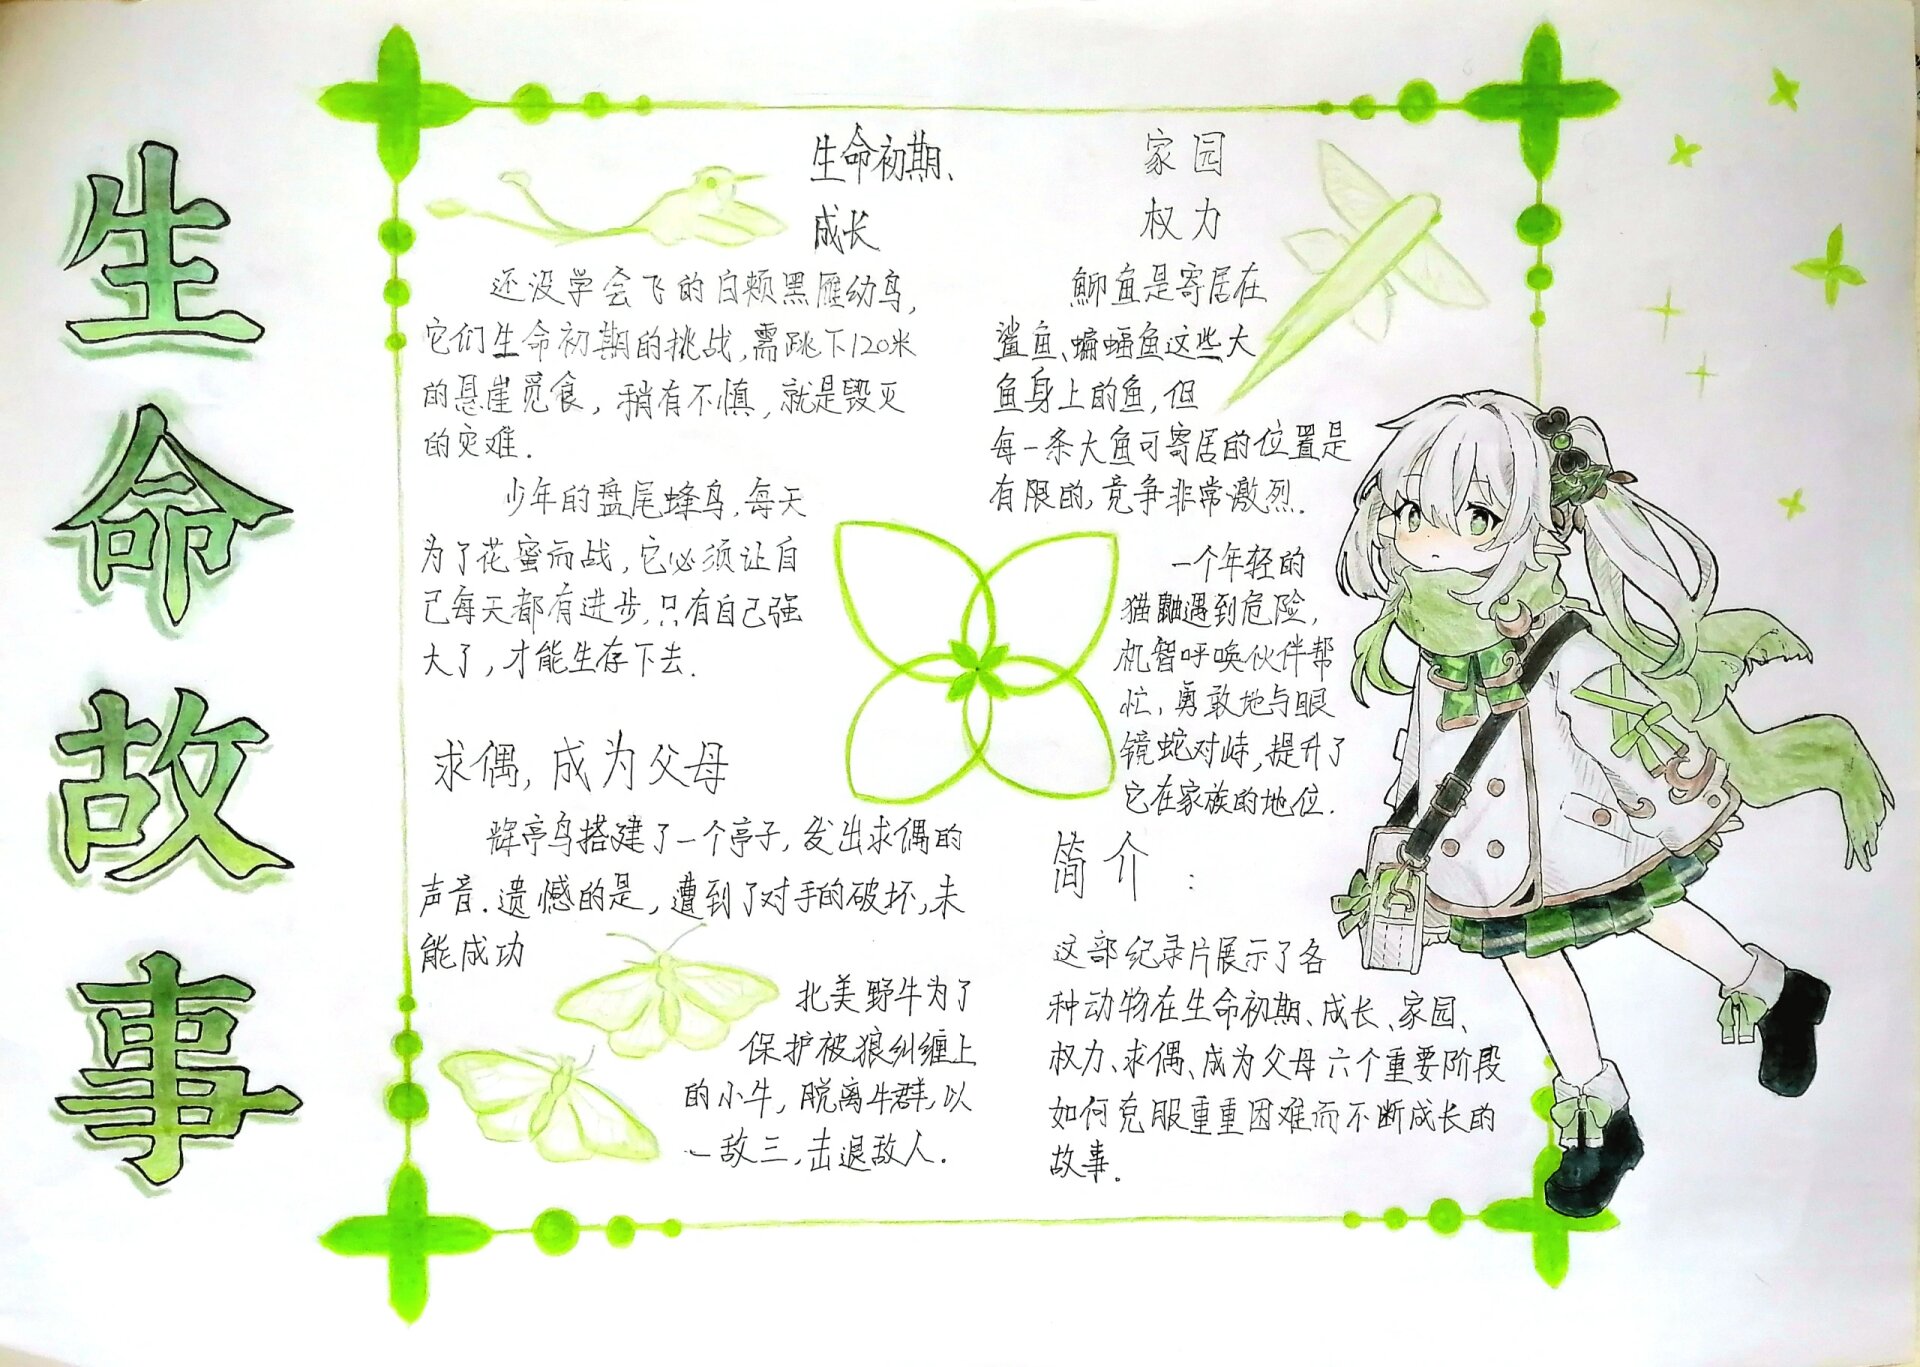 生命故事
生命初期、
成长
还没学会飞的白颊黑雁幼鸟，
它们生命初期的挑战，需跳下120米
的悬崖觅食，稍有不慎，就是毁灭
的灾难.
少年的盘尾蜂鸟，每天
为了花蜜而战，它必须让自
己每天都有进步，只有自己强
大了，才能生存下去.
求偶，成为父母
辉亭鸟搭建了一个亭子，发出求偶的
声音.遗憾的是，遭到了对手的破坏，未
能成功
北美野牛为了
保护被狼纠缠上
的小牛，脱离牛群，以
一敌三，击退敌人.
家园
权力
鮣鱼是寄居在
鲨鱼、蝙蝠鱼这些大
鱼身上的鱼，但
每一条大鱼可寄居的位置是
有限的，竞争非常激烈.
一个年轻的
猫鼬遇到危险，
机智呼唤伙伴帮
忙，勇敢地与眼
镜蛇对峙，提升了
它在家族的地位.
简介：
这部纪录片展示了各
种动物在生命初期、成长、家园、
权力、求偶、成为父母六个重要阶段
如何克服重重困难而不断成长的
故事.